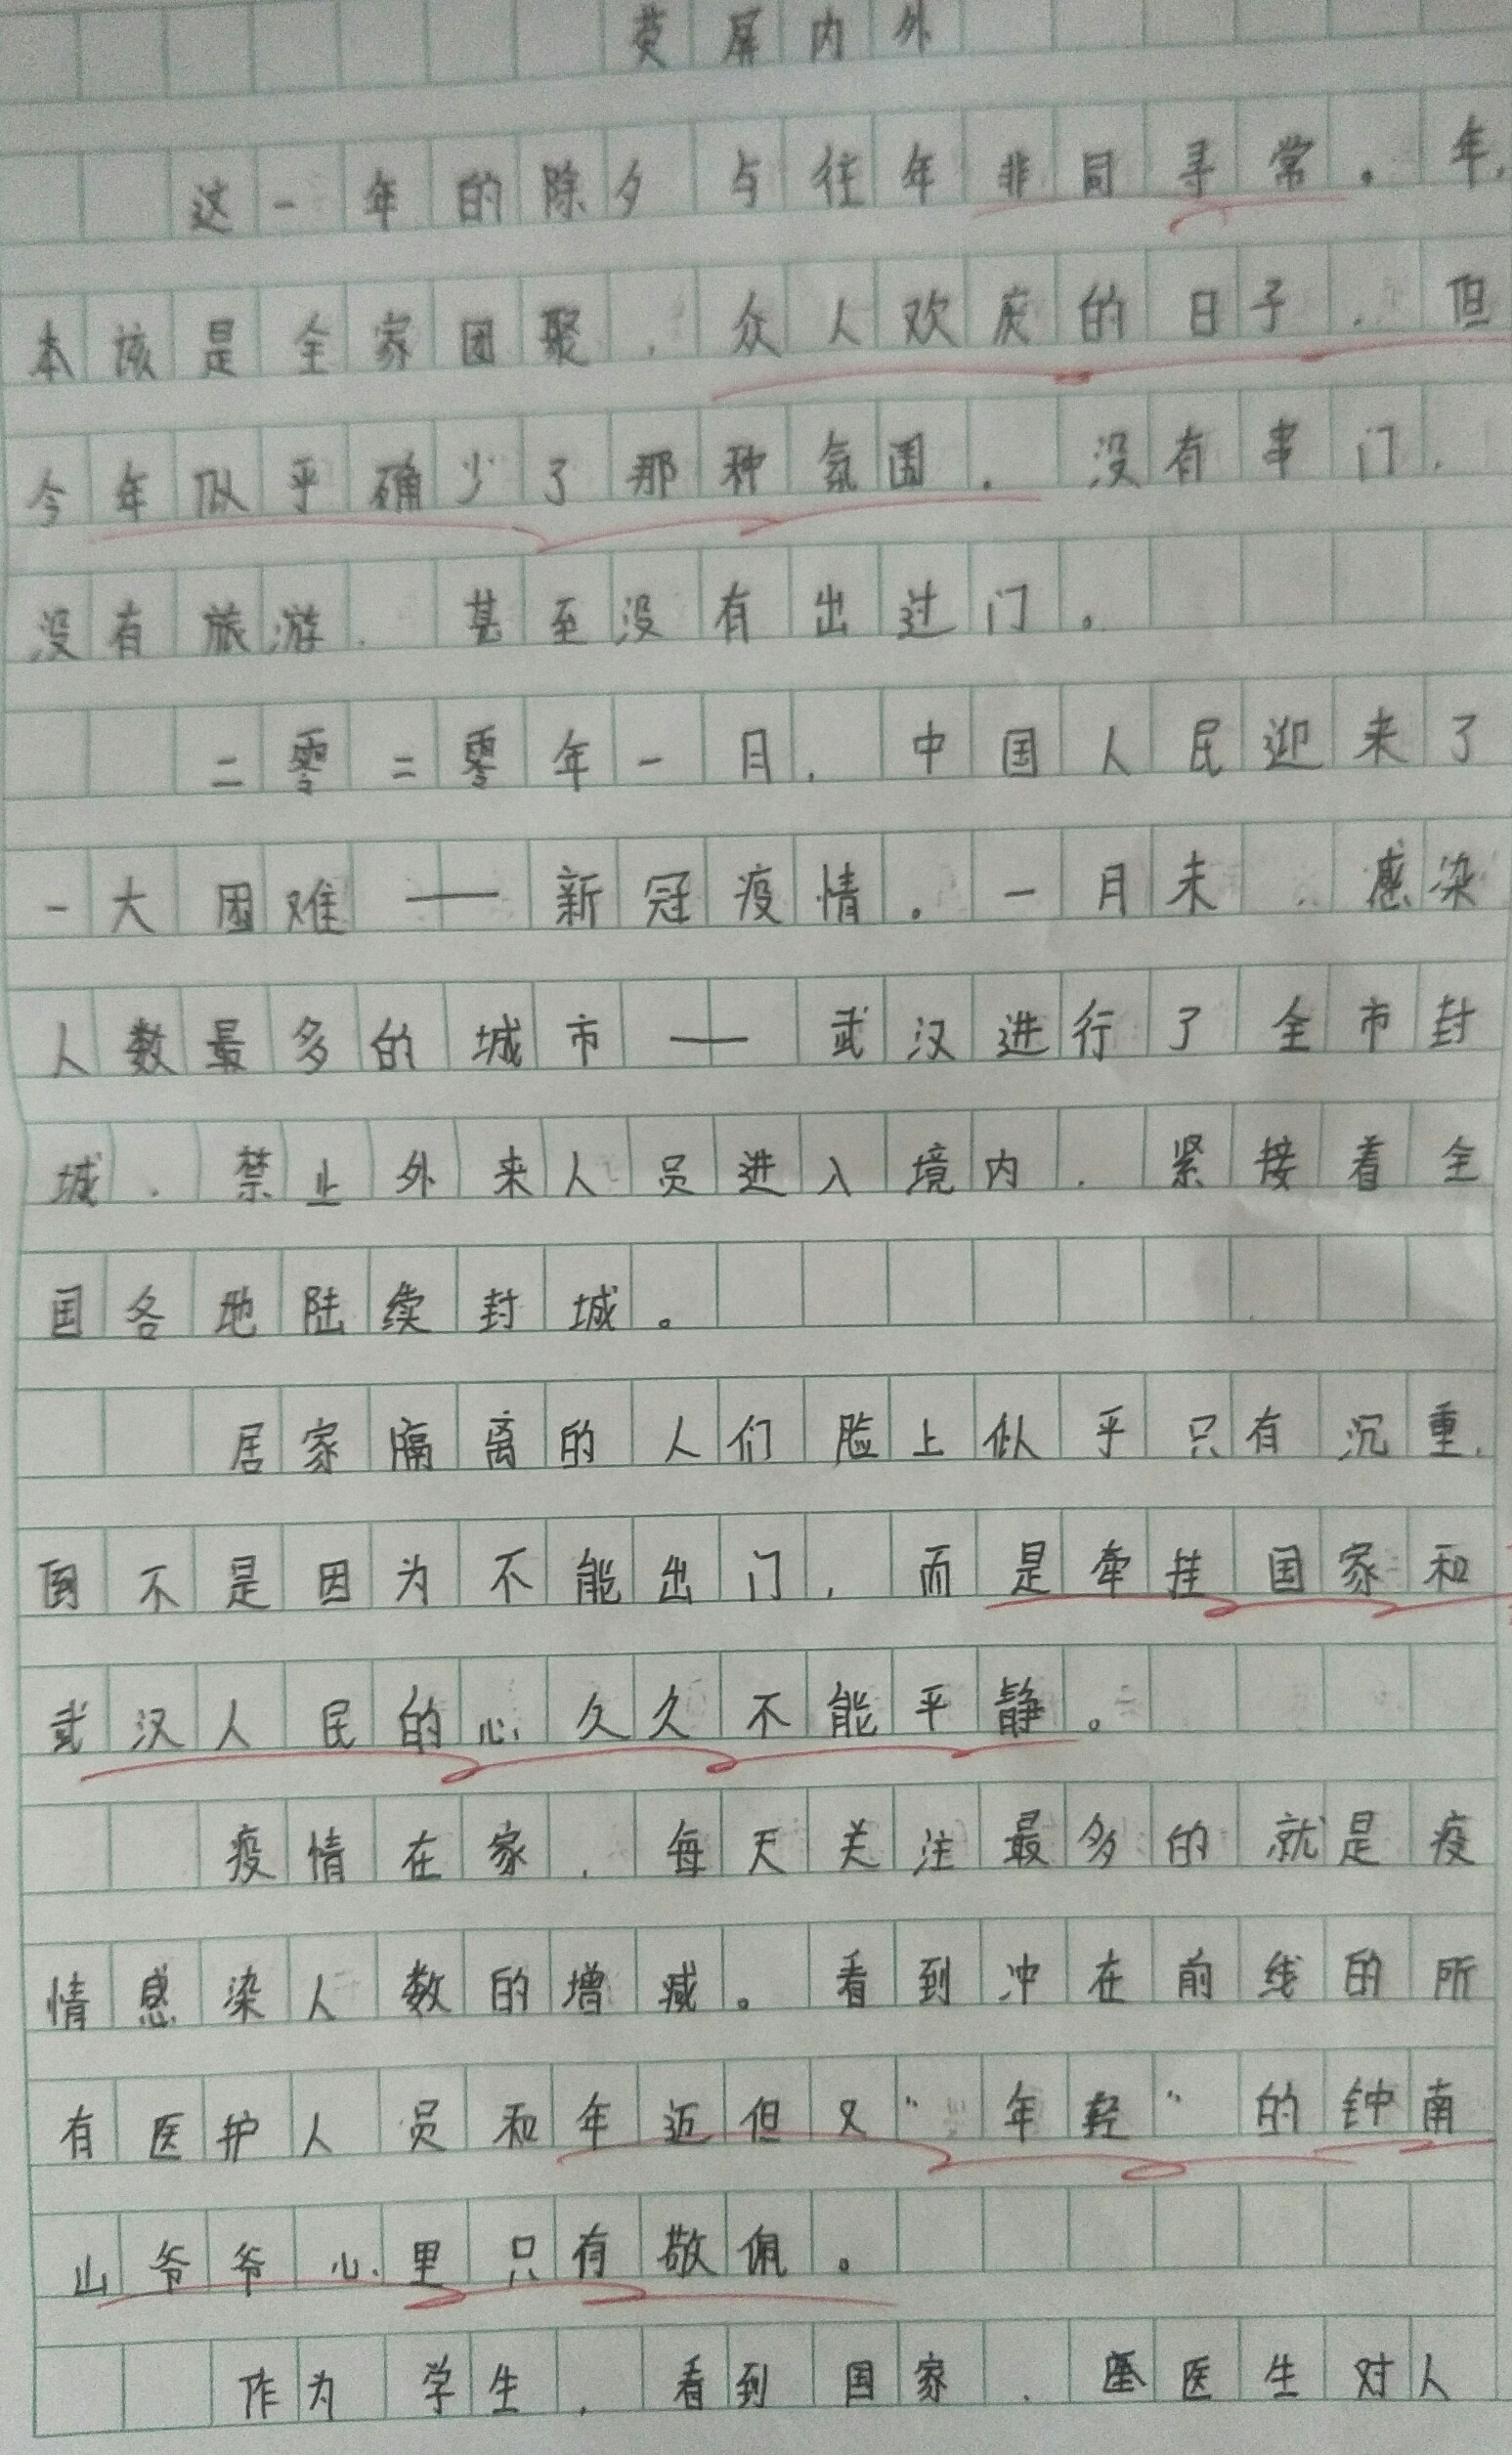 荧屏内外
这一年的除夕与往年非同寻常。年,
本该是全家团聚,众人欢庆的日子,但
今年似乎确少了那种氛围。没有串门,
没有旅游,甚至没有出过门。
二零二零年一月,中国人民迎来了
一大困难——新冠疫情。一月末,感染
人数最多的城市——武汉进行了全市封
城,禁止外来人员进入境内,紧接着全
国各地陆续封城。
居家隔离的人们脸上似乎只有沉重,
倒不是因为不能出门,而是牵挂国家和
武汉人民的心久久不能平静。
疫情在家,每天关注最多的就是疫
情感染人数的增减。看到冲在前线的所
有医护人员和年迈但又“年轻”的钟南
山爷爷心里只有敬佩。
作为学生,看到国家、医生对人